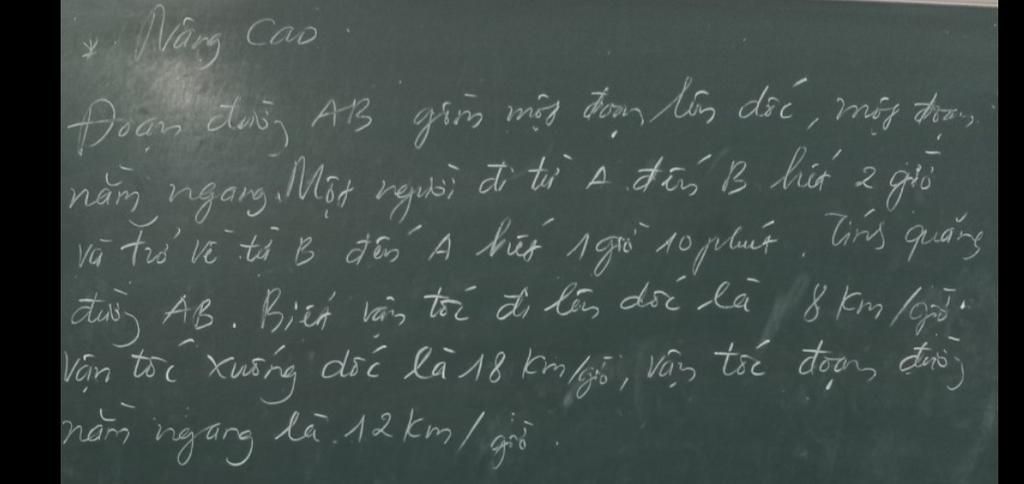 * Nâng Cao
Đoạn đường AB gồm một đoạn lên dốc, một đoạn
nằm ngang. Một người đi từ A đến B hết 2 giờ
và trở về từ B đến A hết 1 giờ 10 phút. Tính quãng
đường AB. Biết vận tốc đi lên dốc là 8 km/giờ.
Vận tốc xuống dốc là 18 km/giờ, vận tốc đoạn đường
nằm ngang là 12 km/giờ.